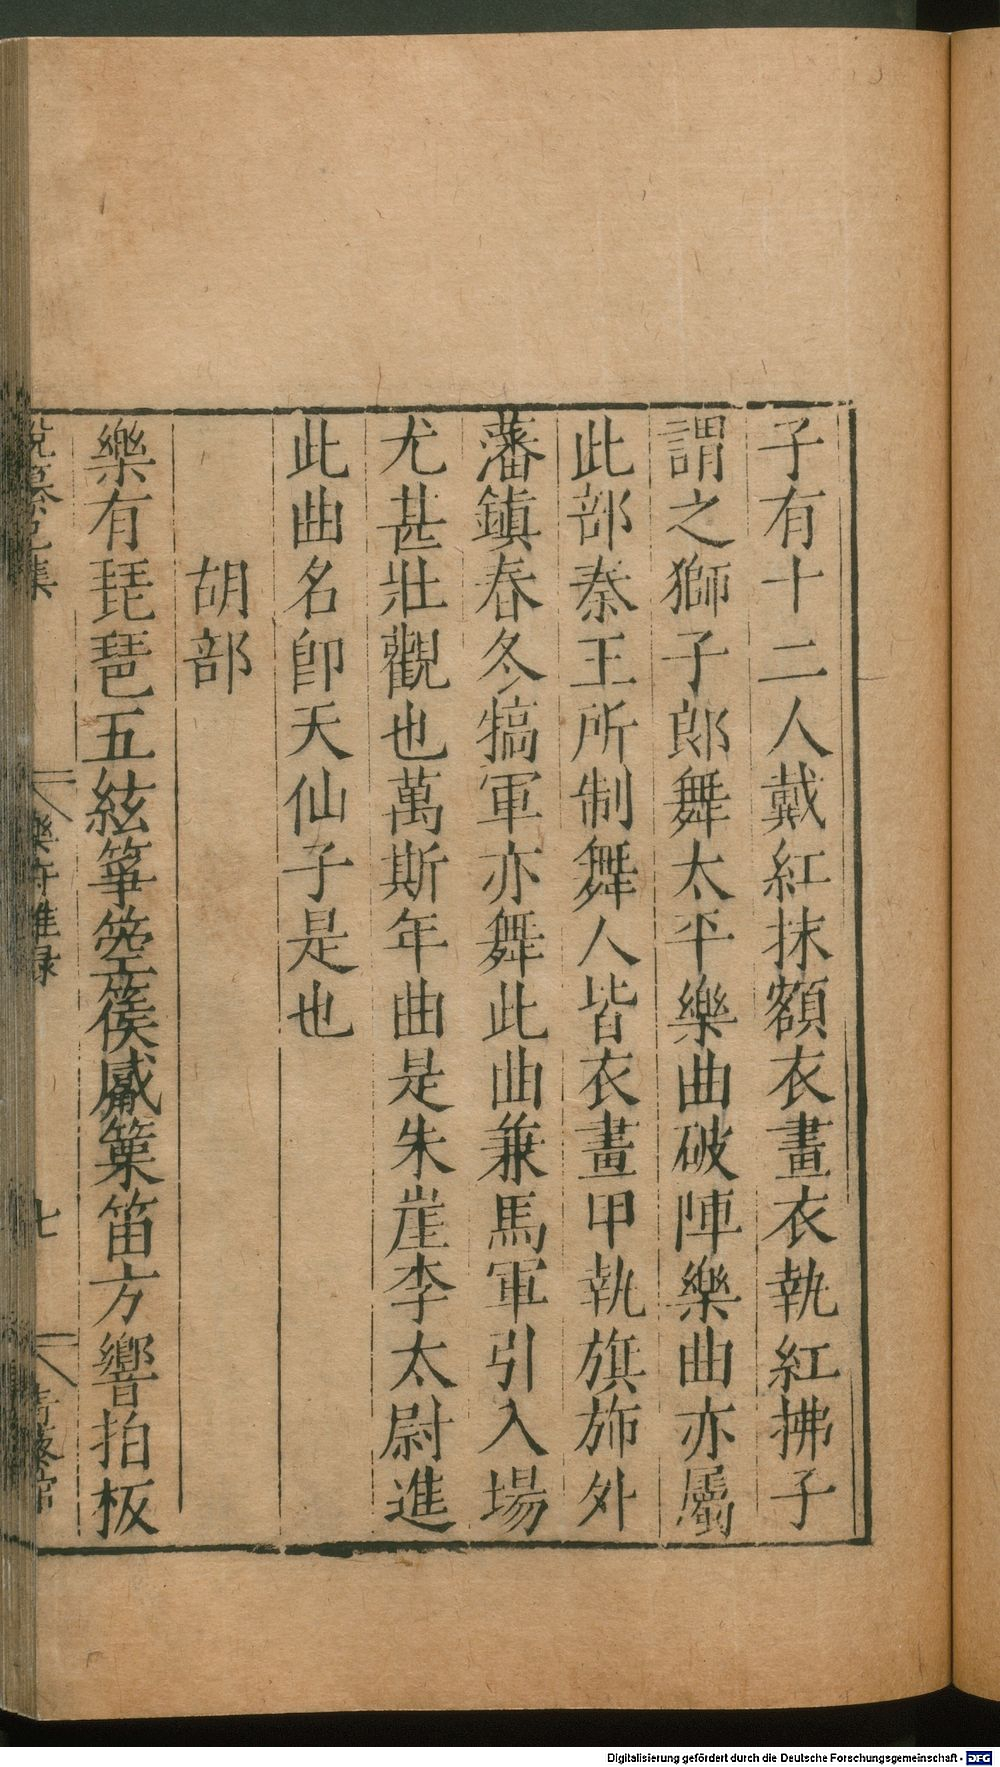 子有十二人戴紅抹額衣畫衣執紅拂子
謂之獅子郎舞太平樂曲破陣樂曲亦屬
此部秦王所制舞人皆衣畫甲執旗斾外
藩鎮春冬犒軍亦舞此曲兼馬軍引入場
尤甚壯觀也萬斯年曲是朱崖李太尉進
此曲名卽天仙子是也
胡部
樂有琵琶五絃箏箜篌觱篥笛方響拍板
樂府雜録
七
Digitalisierung gefördert durch die Deutsche Forschungsgemeinschaft - DFG